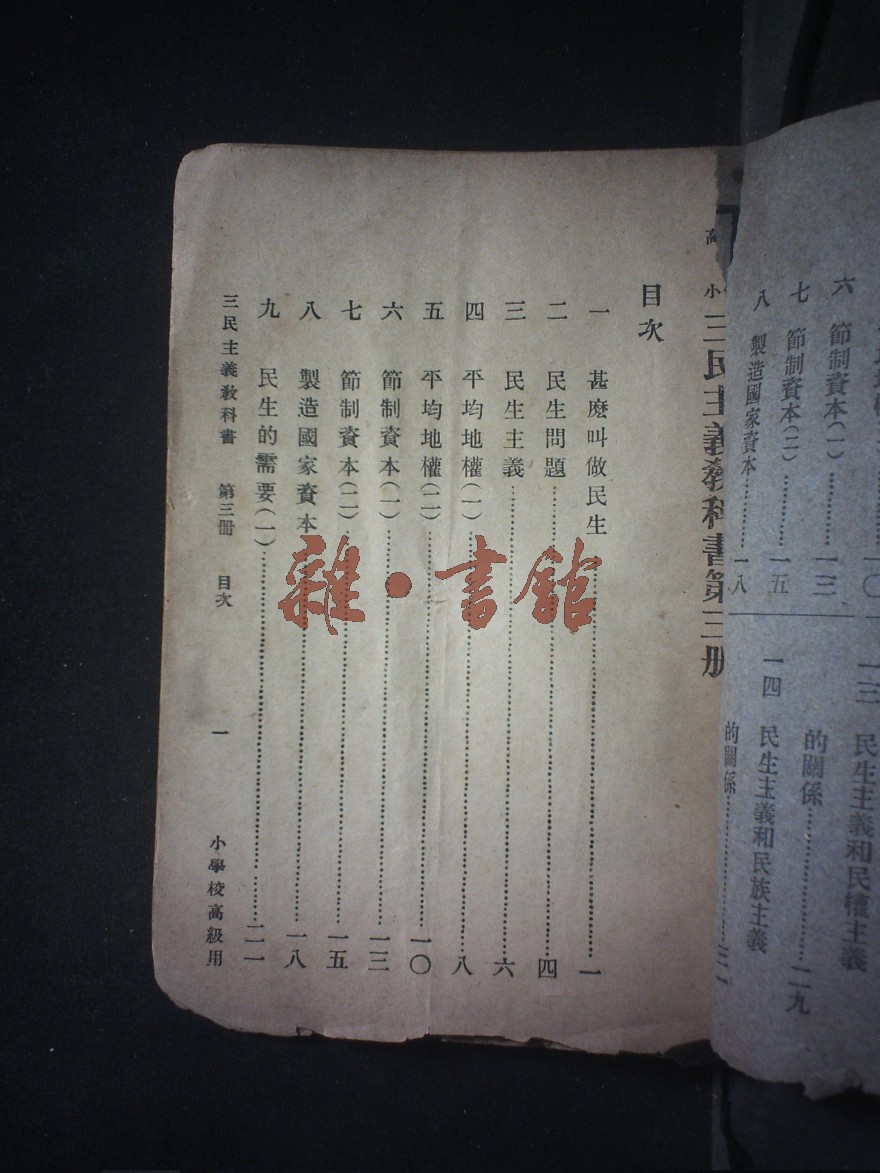 高小
三民主義教科書第三册
目次
一 甚麽叫做民生……一
二 民生問題……四
三 民生主義……六
四 平均地權(一)……八
五 平均地權(二)……一〇
六 節制資本(一)……一三
七 節制資本(二)……一五
八 製造國家資本……一八
九 民生的需要(一)……二一
三民主義教科書 第三册 目次 一 小學校高級用
雜·書館
一〇
六 節制資本(一)……一三
七 節制資本(二)……一五
八 製造國家資本……一八
一三 民生主義和民權主義
的關係……二九
一四 民生主義和民族主義
的關係……三一